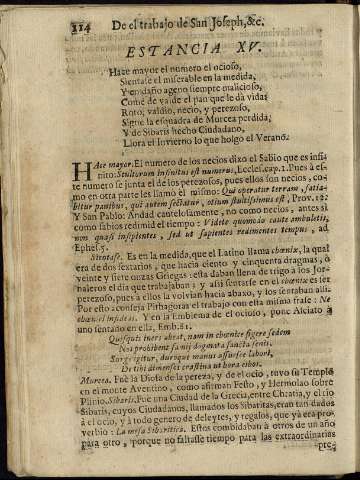 314 De el trabajo de San Joseph, &c.
ESTANCIA XV.
Haze mayor el numero el ocioso,
Sientase el miserable en la medida,
Y en daño ageno siempre malicioso,
Come de valde el pan que le dà vida:
Roto, valdio, necio, y perezoso,
Sigue la esquadra de Murcea perdida,
Y de Sibaris hecho Ciudadano,
Llora el Invierno lo que holgo el Verano.
HAze mayor. El numero de los necios dixo el Sabio que es infi-
nito: Stultorum infinitus est numerus, Eccles. cap. 1. Pues à es-
te numero se junta el de los perezosos, pues ellos son necios, co-
mo en otra parte les llamò el mismo: Qui operatur terram, satia-
bitur panibus, qui autem sectatur, otium stultissimus est, Prov. 12.
Y San Pablo: Andad cautelosamente, no como necios, antes si
como sabios redimid el tiempo: Videte quomodo caute ambuletis,
non quasi insipientes, sed ut sapientes redimentes tempus, ad
Ephes. 5.
Sientase. Es en la medida, que el Latino llama chœnix, la qual
era de dos sextarios, que hazia ciento y cinquenta dragmas, ò
veinte y siete onzas Griegas: esta daban llena de trigo à los Jor-
naleros el dia que trabajaban; y assi sentarse en el chœnix es ser
perezoso, pues à ellos la volvian hacia abaxo, y los sentaban alli.
Por esto aconseja Pithagoras el trabajo con esta misma frase: Ne
chœnici insideas. Y en la Emblema de el ocioso, pone Alciato à
uno sentado en ella, Emb. 81.
Quisquis iners abeat, nam in chœnice figere sedem
Nos prohibent samij dogmata sancta senis.
Surge igitur, duroque manus assuesce labori,
Det tibi dimensos crastina ut hora cibos.
Murcea. Fuè la Diosa de la pereza, y de el ocio, tuvo su Templo
en el monte Aventino, como afirman Festo, y Hermolao sobre
Plinio. Sibaris. Fue una Ciudad de la Grecia, entre Chratia, y el rio
Sibaris, cuyos Ciudadanos, llamados los Sibaritas, eran tan dados
à el ocio, y à todo genero de deleytes, y regalos, que yà era pro-
verbio: La mesa Sibaritica. Estos combidaban à otros de un año
para otro, porque no faltasse tiempo para las extraordinarias
pre-